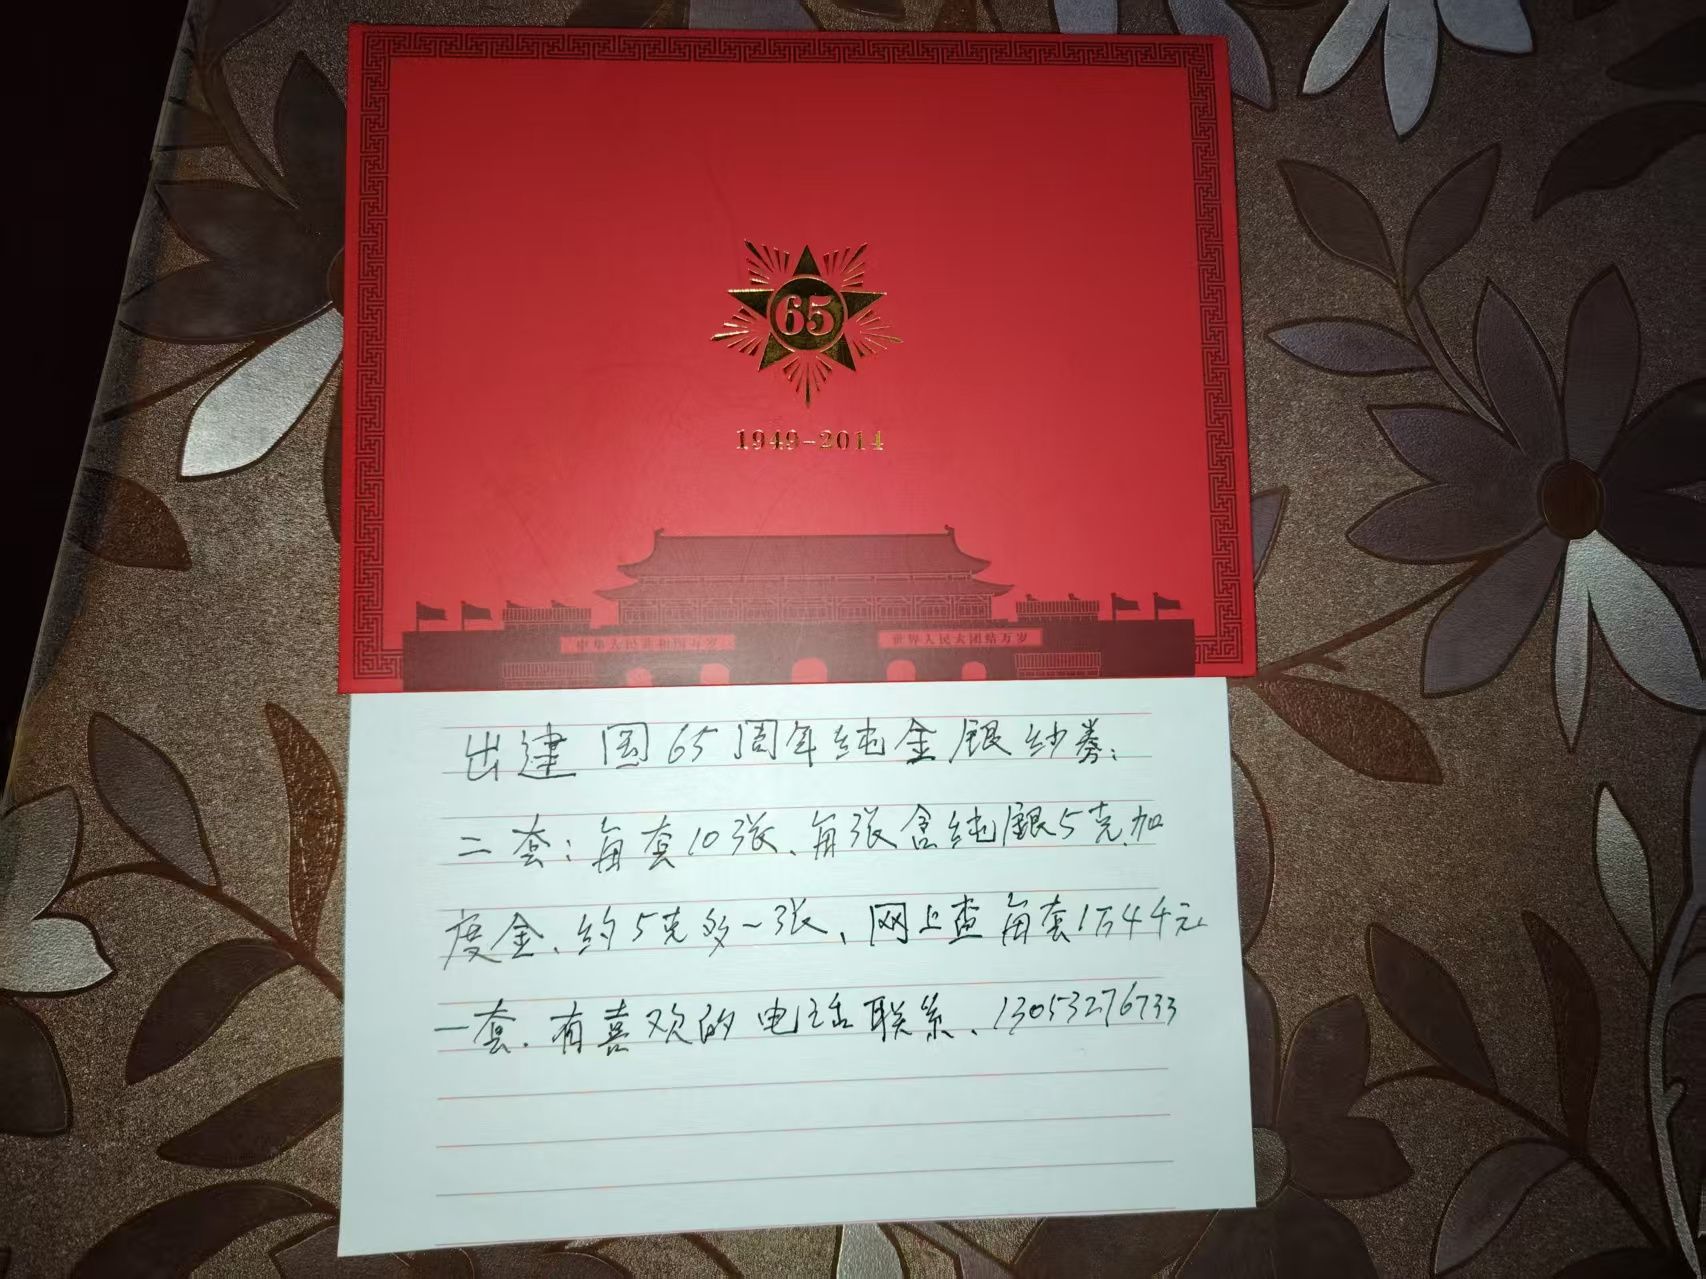 65
1949-2014
中华人民共和国万岁 世界人民大团结万岁
出建国65周年纯金银纱券:
二套:每套10张、每张含纯银5克,加
度金、约5克多一张、网上查每套1万44元
一套.有喜欢的电话联系、13053276733